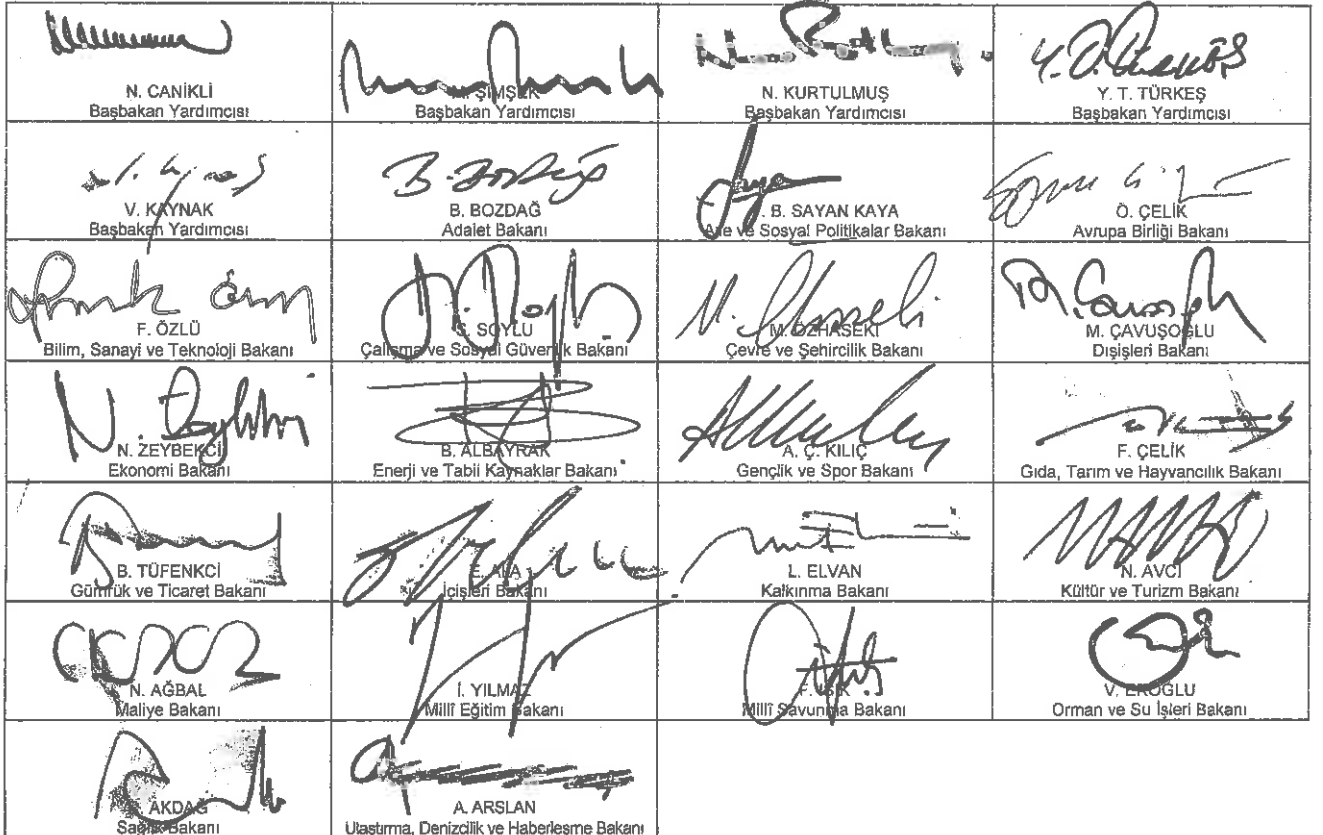 N. CANİKLİ
Başbakan Yardımcısı
M. ŞİMŞEK
Başbakan Yardımcısı
N. KURTULMUŞ
Başbakan Yardımcısı
Y. T. TÜRKEŞ
Başbakan Yardımcısı
V. KAYNAK
Başbakan Yardımcısı
B. BOZDAĞ
Adalet Bakanı
B. SAYAN KAYA
Aile ve Sosyal Politikalar Bakanı
Ö. ÇELİK
Avrupa Birliği Bakanı
F. ÖZLÜ
Bilim, Sanayi ve Teknoloji Bakanı
S. SOYLU
Çalışma ve Sosyal Güvenlik Bakanı
M. ÖZHASEKİ
Çevre ve Şehircilik Bakanı
M. ÇAVUŞOĞLU
Dışişleri Bakanı
N. ZEYBEKCİ
Ekonomi Bakanı
B. ALBAYRAK
Enerji ve Tabii Kaynaklar Bakanı
A. Ç. KILIÇ
Gençlik ve Spor Bakanı
F. ÇELİK
Gıda, Tarım ve Hayvancılık Bakanı
B. TÜFENKCİ
Gümrük ve Ticaret Bakanı
E. ALA
İçişleri Bakanı
L. ELVAN
Kalkınma Bakanı
N. AVCI
Kültür ve Turizm Bakanı
N. AĞBAL
Maliye Bakanı
İ. YILMAZ
Millî Eğitim Bakanı
F. IŞIK
Millî Savunma Bakanı
V. EROĞLU
Orman ve Su İşleri Bakanı
AKDAĞ
Sağlık Bakanı
A. ARSLAN
Ulaştırma, Denizcilik ve Haberleşme Bakanı